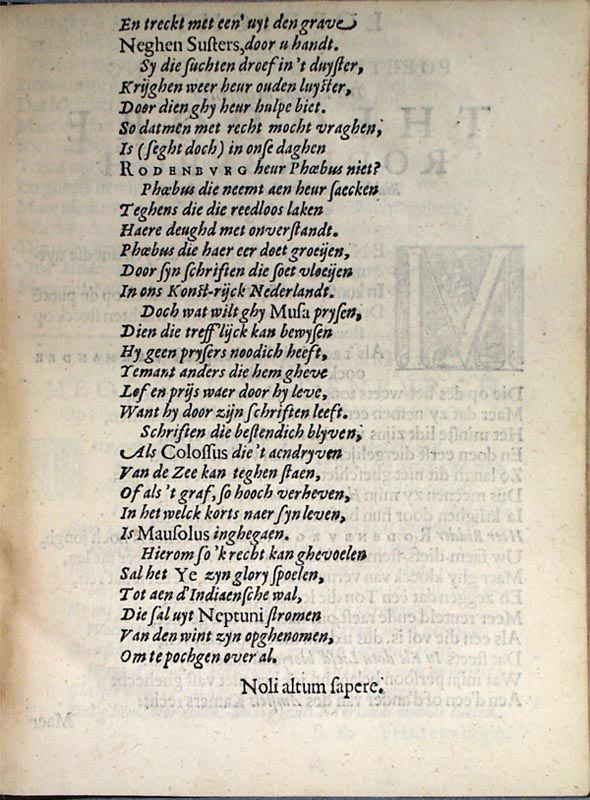 En treckt met een' uyt den grave
Neghen Susters, door u handt.
Sy die suchten droef in 't duyster,
Krijghen weer heur ouden luyster,
Door dien ghy heur hulpe biet.
So datmen met recht mocht vraghen,
Is (seght doch) in onse daghen
RODENBVRG heur Phœbus niet?
Phœbus die neemt aen heur saecken
Teghens die die reedloos laken
Haere deughd met onverstandt.
Phœbus die haer eer doet groeijen,
Door sijn schriften die soet vloeijen
In ons Konst-rijck Nederlandt.
Doch wat wilt ghy Musa prysen,
Dien die treff'lijck kan bewysen
Hy geen prysers noodich heeft,
Yemant anders die hem gheve
Lof en prijs waer door hy leve,
Want hy door zijn schriften leeft.
Schriften die bestendich blyven,
Als Colossus die 't aendryven
Van de Zee kan teghen staen,
Of als 't graf, so hooch verheven,
In het welck korts naer syn leven,
Is Mausolus inghegaen.
Hierom so 'k recht kan ghevoelen
Sal het Ye zyn glory spoelen,
Tot aen d'Indiaensche wal,
Die sal uyt Neptuni stromen
Van den wint zyn opghenomen,
Om te pochgen over al.
Noli altum sapere.